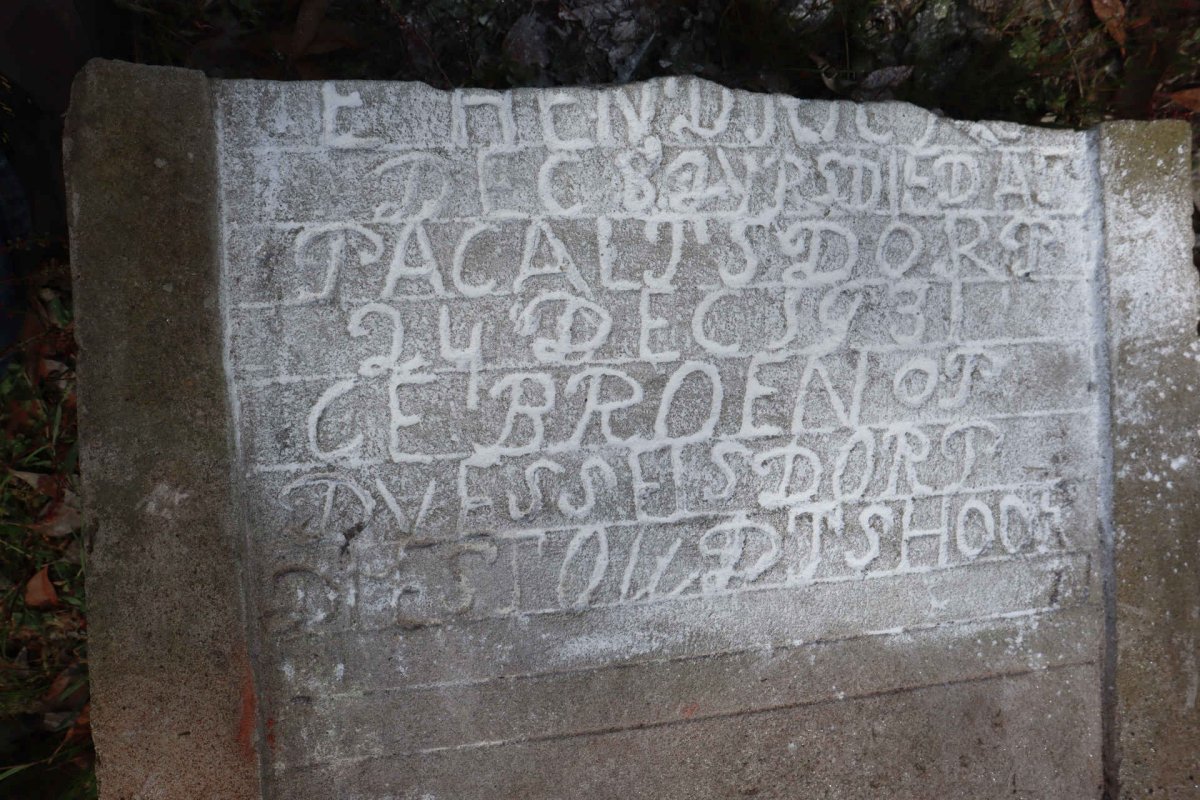 E HENDJOCJ
DEC 82YRSDIEDAT
PACALTSDORP
24 DEC 1931
CE BROEN OF
DVESSELSDORP
DIESTOUDTSHOOR